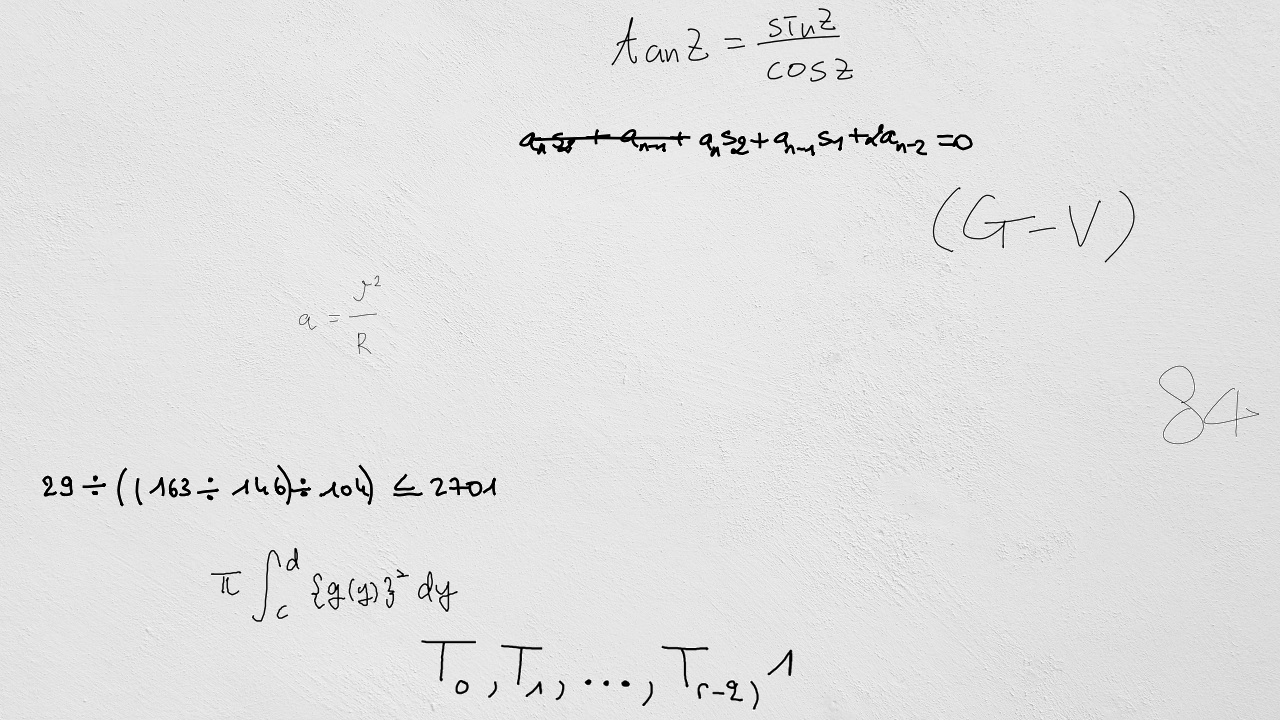 tan z = sin z / cos z
a_n s_2 + a_{n-1} + a_n s_2 + a_{n-1} s_1 + 2a_{n-2} = 0
(G - V)
a = v² / R
84
29 ÷ ((163 ÷ 146) ÷ 104) ≤ 2701
π ∫_c^d {g(y)}² dy
T_0, T_1, ..., T_{r-2}, 1